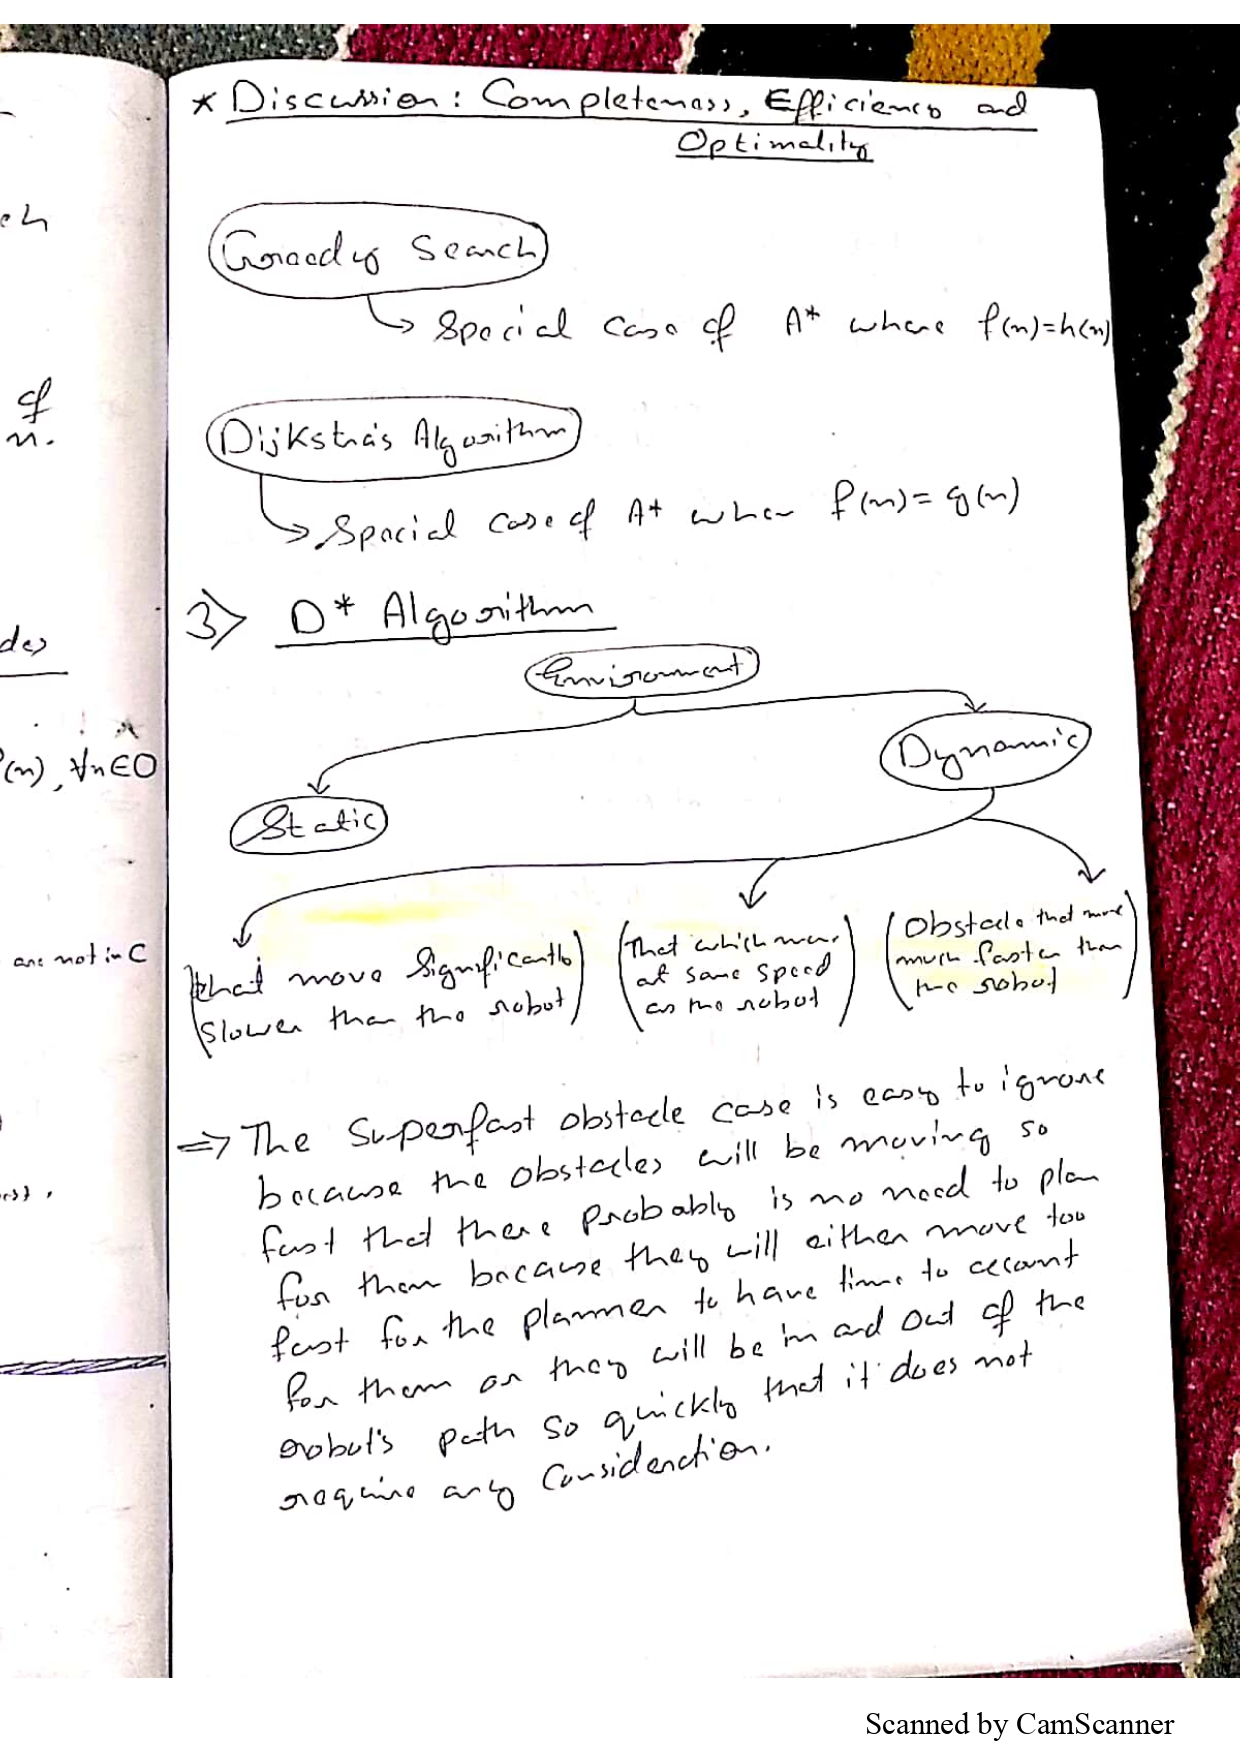 * Discussion: Completeness, Efficiency and
Optimality
ch
Greedy Search
Special case of A* where f(n)=h(n)
of
n.
Dijkstra's Algorithm
Special case of A* where f(n)=g(n)
3> D* Algorithm
des
Environment
(n), ∀n∈O
Dynamic
Static
are not in C
(that move significantly
slower than the robot)
(That which move
at same speed
as the robot)
(Obstacle that move
much faster than
the robot)
=> The Superfast obstacle case is easy to ignore
because the obstacles will be moving so
fast that there probably is no need to plan
for them because they will either move too
fast for the planner to have time to account
for them or they will be in and out of the
robot's path so quickly that it does not
require any consideration.
Scanned by CamScanner